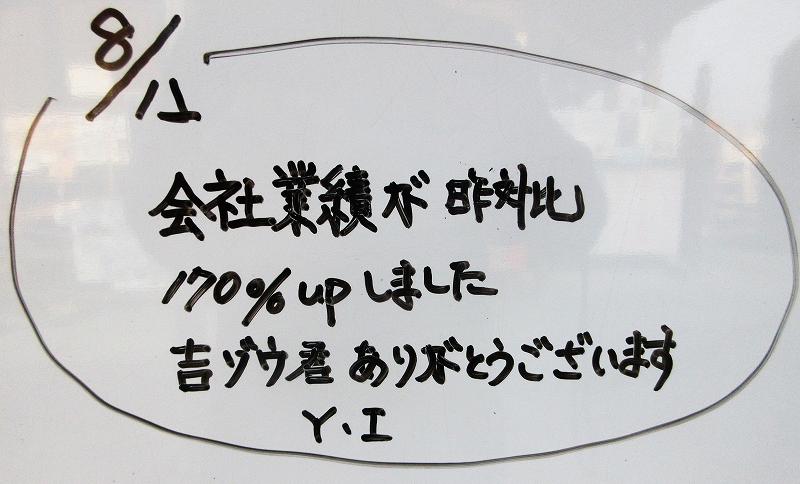 8/11
会社業績が昨対比
170% upしました
吉ゾウ君 ありがとうございます
Y.I